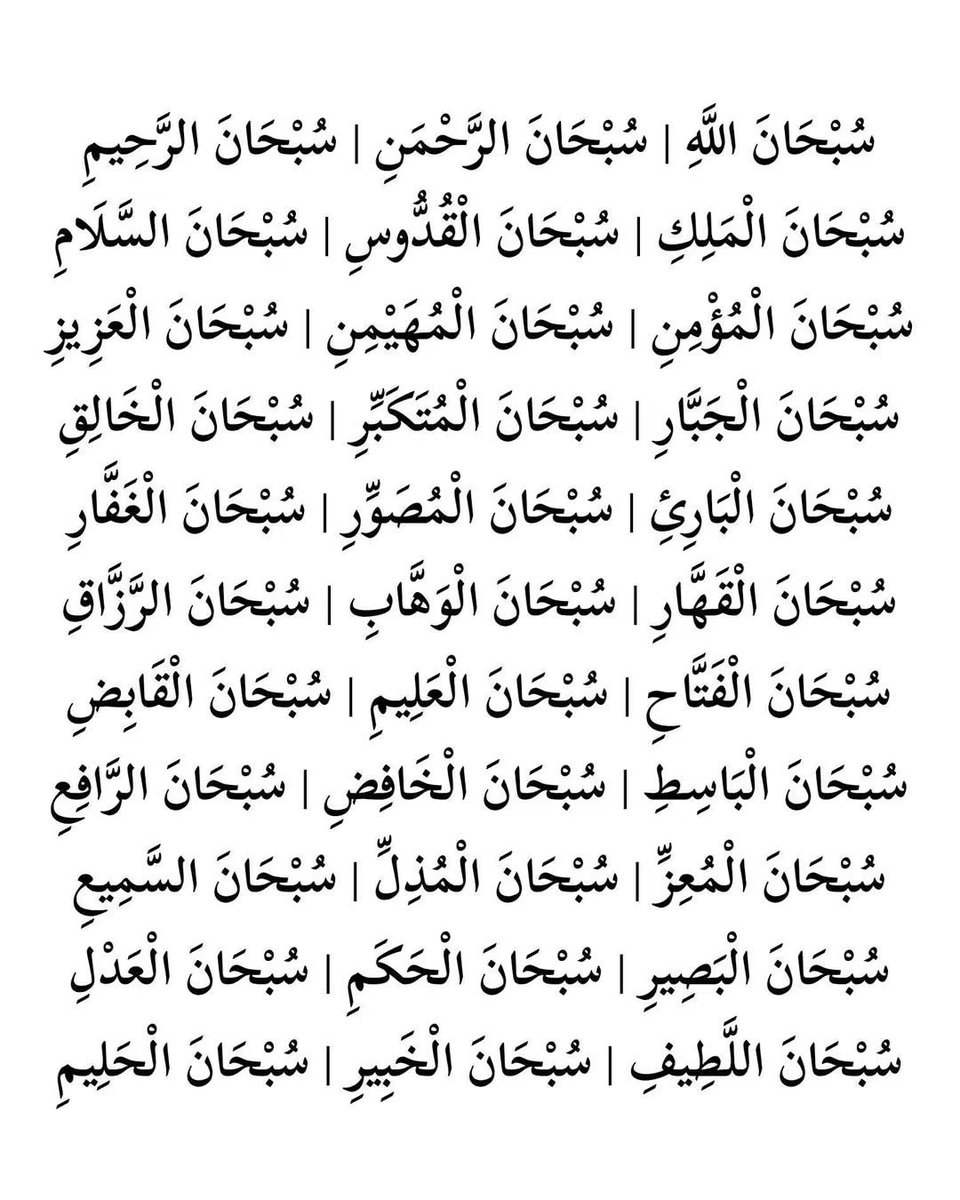 سُبْحَانَ اللَّهِ | سُبْحَانَ الرَّحْمَنِ | سُبْحَانَ الرَّحِيمِ
سُبْحَانَ الْمَلِكِ | سُبْحَانَ الْقُدُّوسِ | سُبْحَانَ السَّلَامِ
سُبْحَانَ الْمُؤْمِنِ | سُبْحَانَ الْمُهَيْمِنِ | سُبْحَانَ الْعَزِيزِ
سُبْحَانَ الْجَبَّارِ | سُبْحَانَ الْمُتَكَبِّرِ | سُبْحَانَ الْخَالِقِ
سُبْحَانَ الْبَارِئِ | سُبْحَانَ الْمُصَوِّرِ | سُبْحَانَ الْغَفَّارِ
سُبْحَانَ الْقَهَّارِ | سُبْحَانَ الْوَهَّابِ | سُبْحَانَ الرَّزَّاقِ
سُبْحَانَ الْفَتَّاحِ | سُبْحَانَ الْعَلِيمِ | سُبْحَانَ الْقَابِضِ
سُبْحَانَ الْبَاسِطِ | سُبْحَانَ الْخَافِضِ | سُبْحَانَ الرَّافِعِ
سُبْحَانَ الْمُعِزِّ | سُبْحَانَ الْمُذِلِّ | سُبْحَانَ السَّمِيعِ
سُبْحَانَ الْبَصِيرِ | سُبْحَانَ الْحَكَمِ | سُبْحَانَ الْعَدْلِ
سُبْحَانَ اللَّطِيفِ | سُبْحَانَ الْخَبِيرِ | سُبْحَانَ الْحَلِيمِ